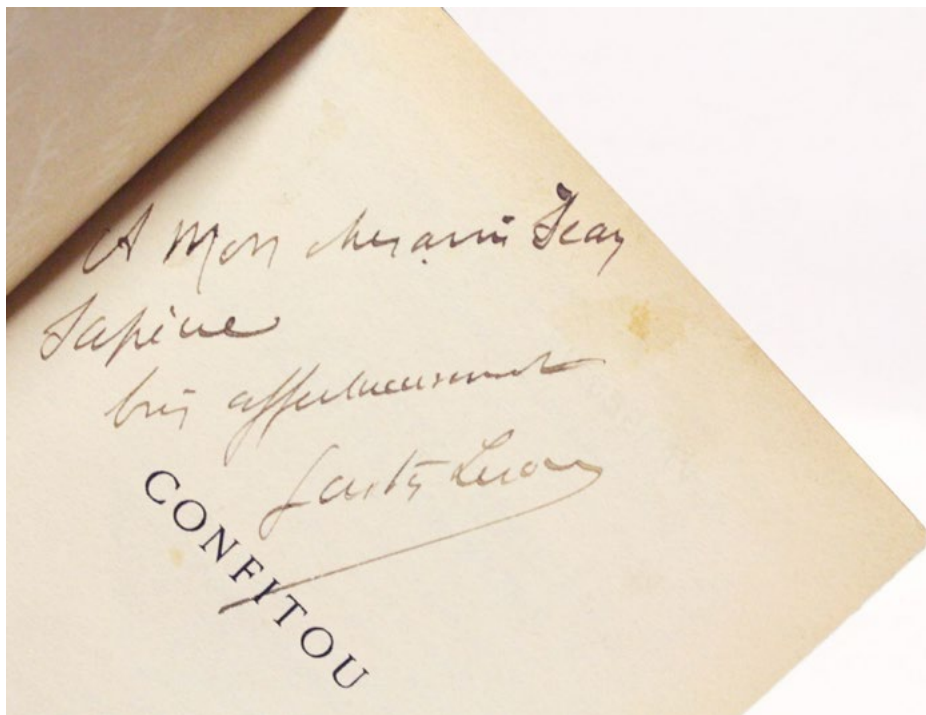 A Mon cher ami Jean
Sapène
très affectueusement
Gaston Leroux
CONFITOU